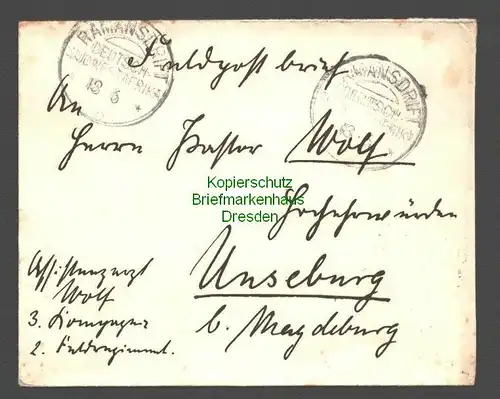 RAMANSDRIFT
DEUTSCH-
SÜDWESTAFRIKA
13 6
RAMANSDRIFT
DEUTSCH-
SÜDWESTAFRIKA
13
Feldpostbrief
An
Herrn Pastor Wolf
Hochehrwürden
Unseburg
b. Magdeburg
Assistenzarzt
Wolf
3. Kompagnie
2. Feldregiment.
Kopierschutz
Briefmarkenhaus
Dresden